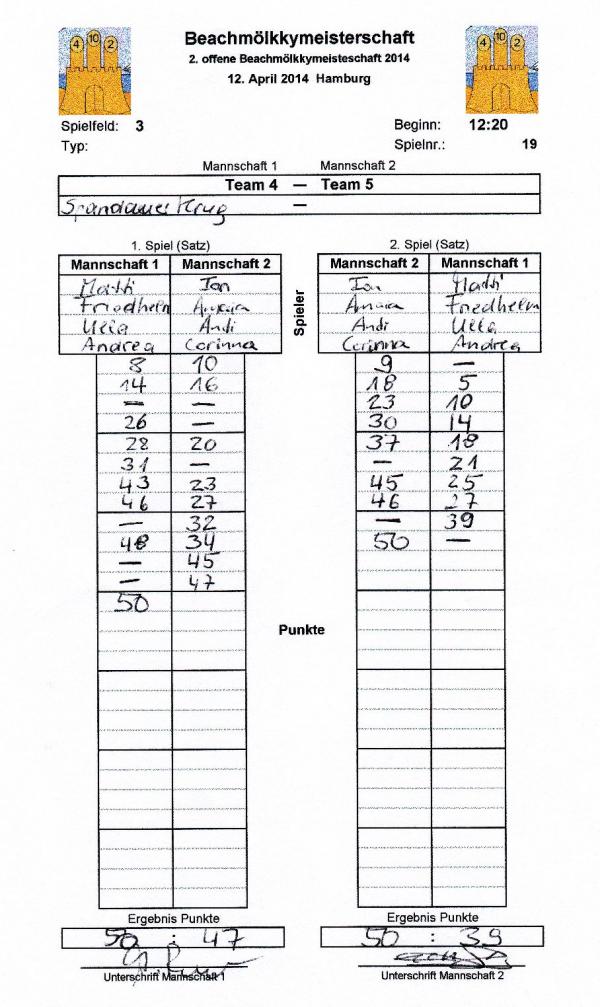 4 10 2
4 10 2
Beachmölkkymeisterschaft
2. offene Beachmölkkymeisteschaft 2014
12. April 2014 Hamburg
Spielfeld: 3 Beginn: 12:20
Typ: Spielnr.: 19
Mannschaft 1 Mannschaft 2
Team 4 — Team 5
Spandauer Krug —
1. Spiel (Satz)
Mannschaft 1 Mannschaft 2
Matti Ian
Friedhelm
Ulla Andi
Andrea Corinna
8 10
14 16
— —
26 —
28 20
31 —
43 23
46 27
— 32
48 34
— 45
— 47
50
Ergebnis Punkte
50 : 47
Unterschrift Mannschaft 1
Spieler
Punkte
2. Spiel (Satz)
Mannschaft 2 Mannschaft 1
Ian Matti
Friedhelm
Andi Ulla
Corinna Andrea
9 —
18 5
23 10
30 14
37 18
— 21
45 25
46 27
— 39
50 —
Ergebnis Punkte
50 : 39
Unterschrift Mannschaft 2